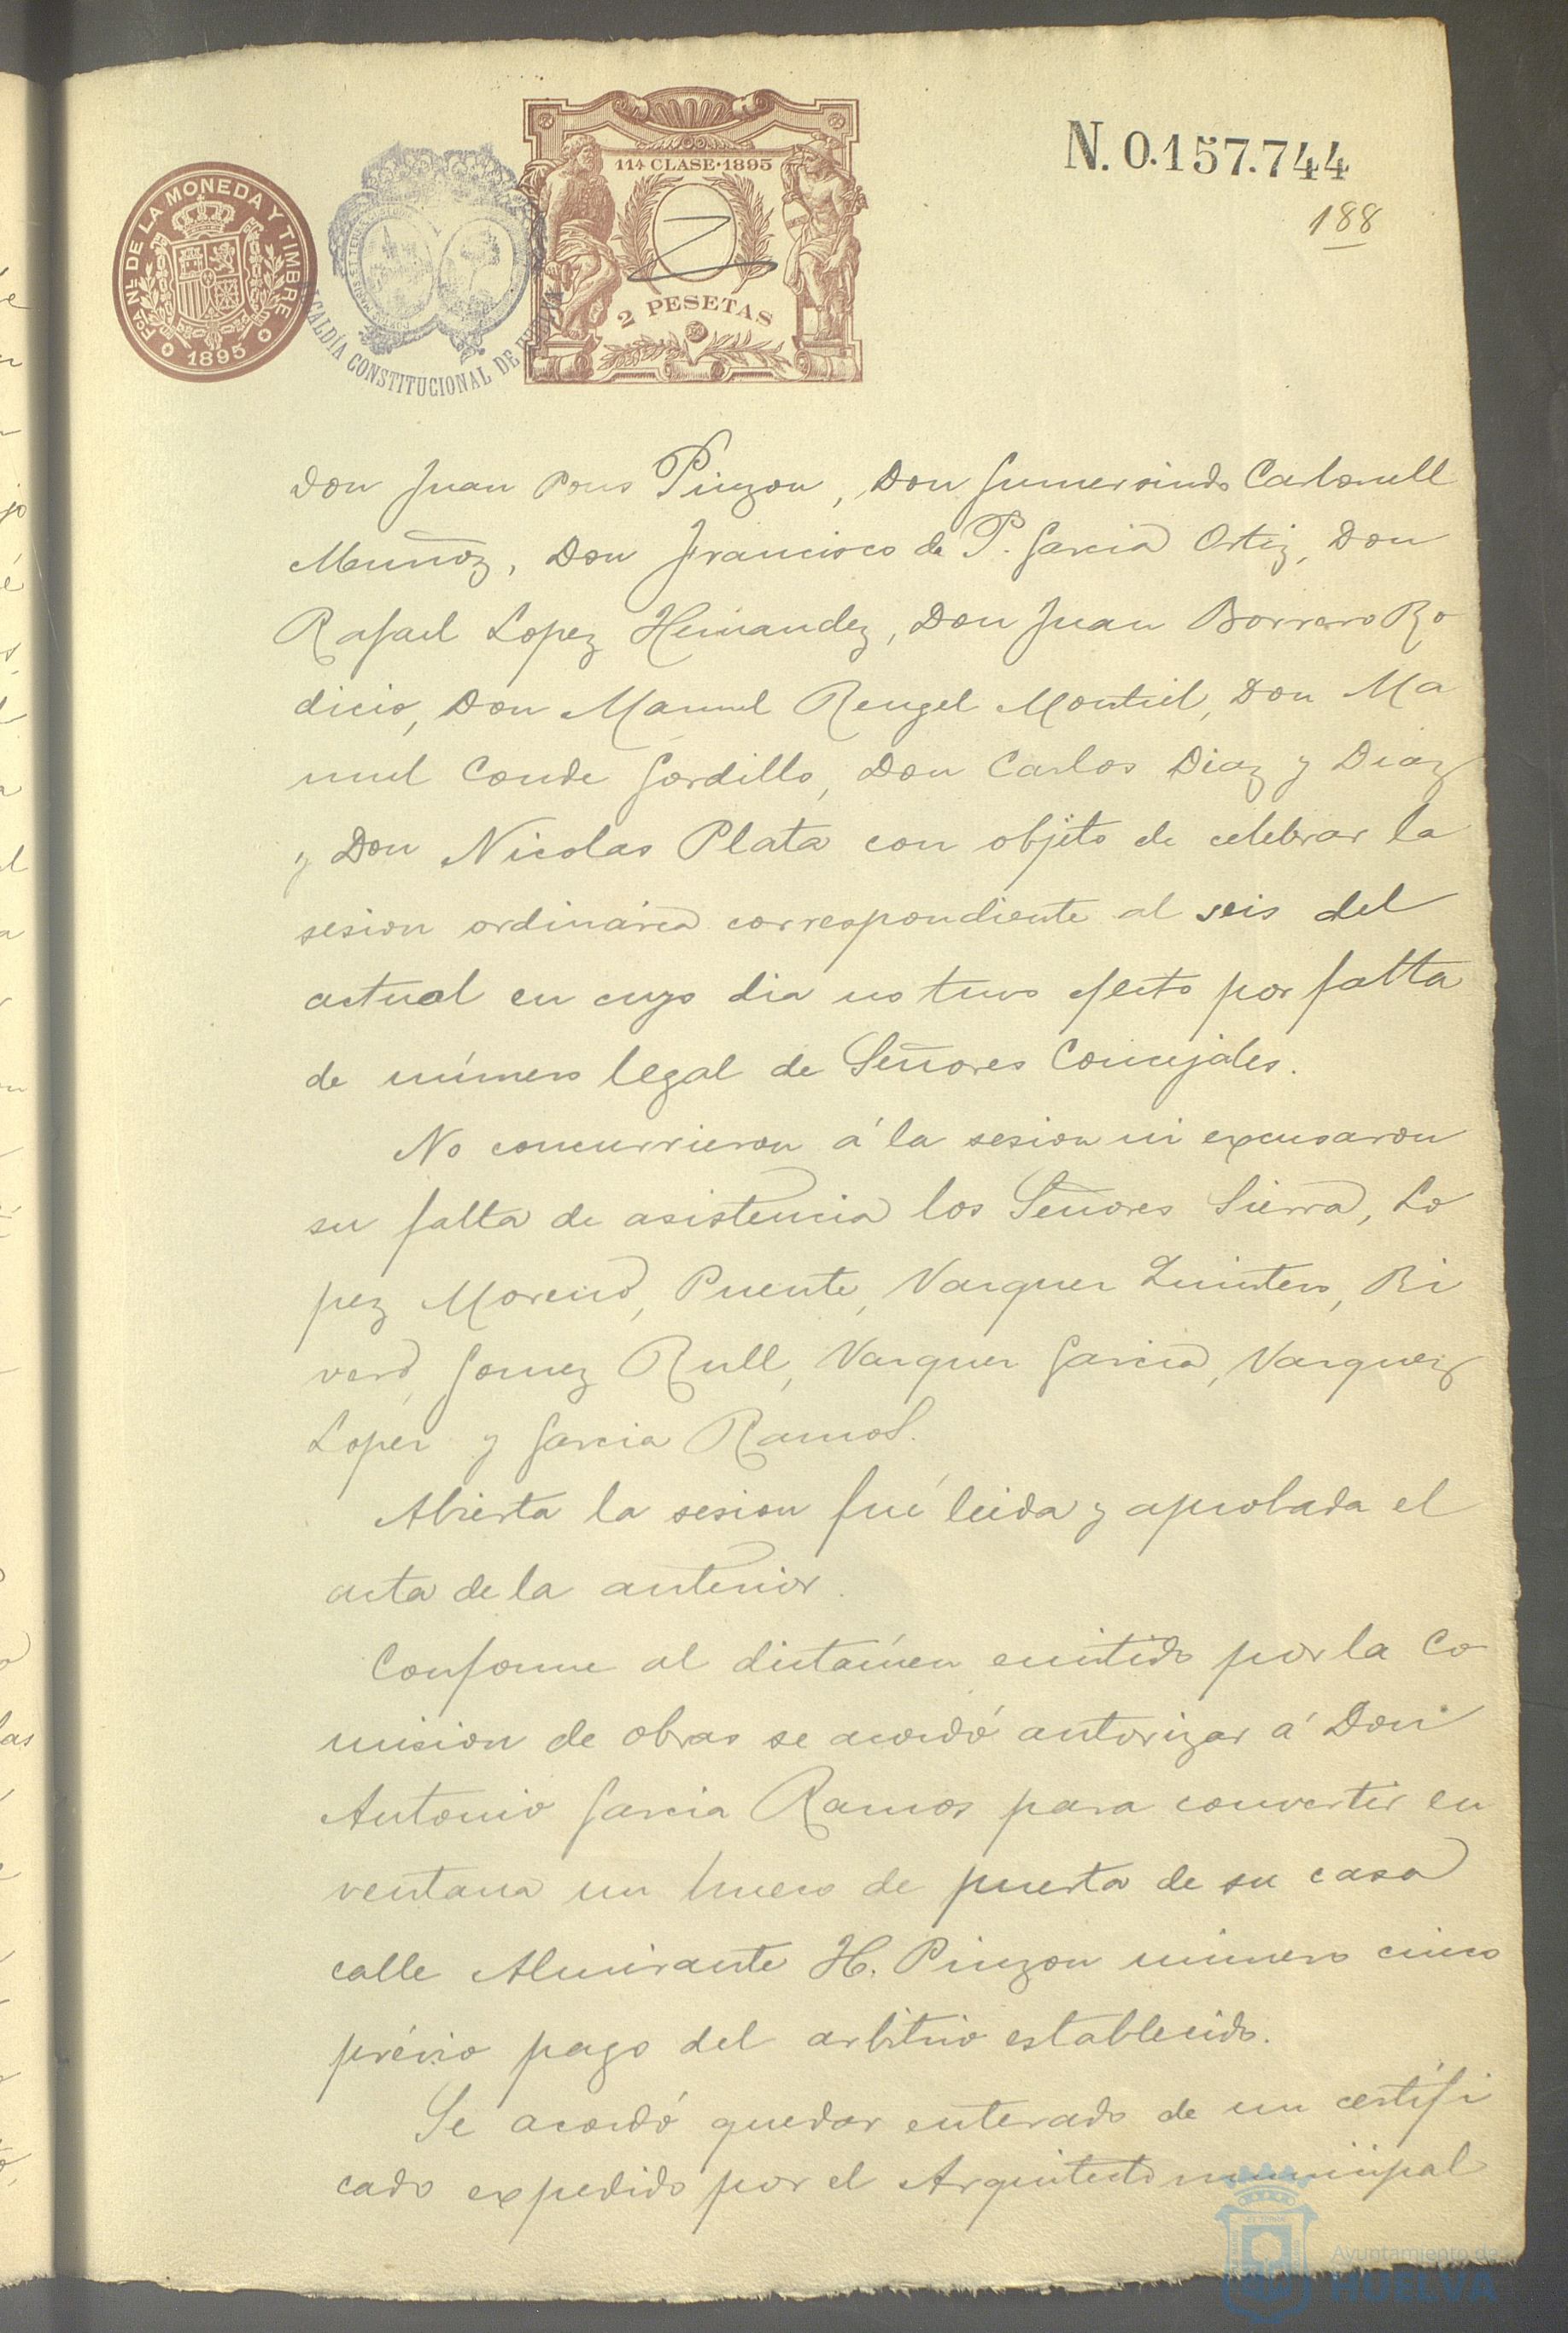 N. 0.157.744
188
11ª CLASE·1895
2 PESETAS
FCA NL DE LA MONEDA Y TIMBRE
1895
ALCALDÍA CONSTITUCIONAL DE HUELVA
Don Juan Pons Pinzon, Don Gumersindo Carbonell
Muñoz, Don Francisco de P. Garcia Ortiz, Don
Rafael Lopez Hernandez, Don Juan Borrero Ro
dicio, Don Manuel Rengel Montiel, Don Ma
nuel Conde Gordillo, Don Carlos Diaz y Diaz
y Don Nicolas Plata con objeto de celebrar la
sesion ordinária correspondiente al seis del
actual en cuyo dia no tuvo efecto por falta
de número legal de Señores Concejáles.
No concurrieron á la sesion ni excusaron
su falta de asistencia los Señores Sierra, Lo
pez Moreno, Puente, Vazquez Quintero, Ri
vero, Gomez Rull, Vazquez Garcia, Vazquez
Lopez y Garcia Ramos.
Abierta la sesion fué leida y aprobada el
acta de la anterior.
Conforme al dictámen emitido por la Co
mision de obras se acordó autorizar á Don
Antonio Garcia Ramos para convertir en
ventana un hueco de puerta de su casa
calle Almirante H. Pinzon número cinco
prévio pago del arbitrio establecido.
Se acordó quedar enterado de un certifi
cado expedido por el Arquitecto municipal
Ayuntamiento de
HUELVA